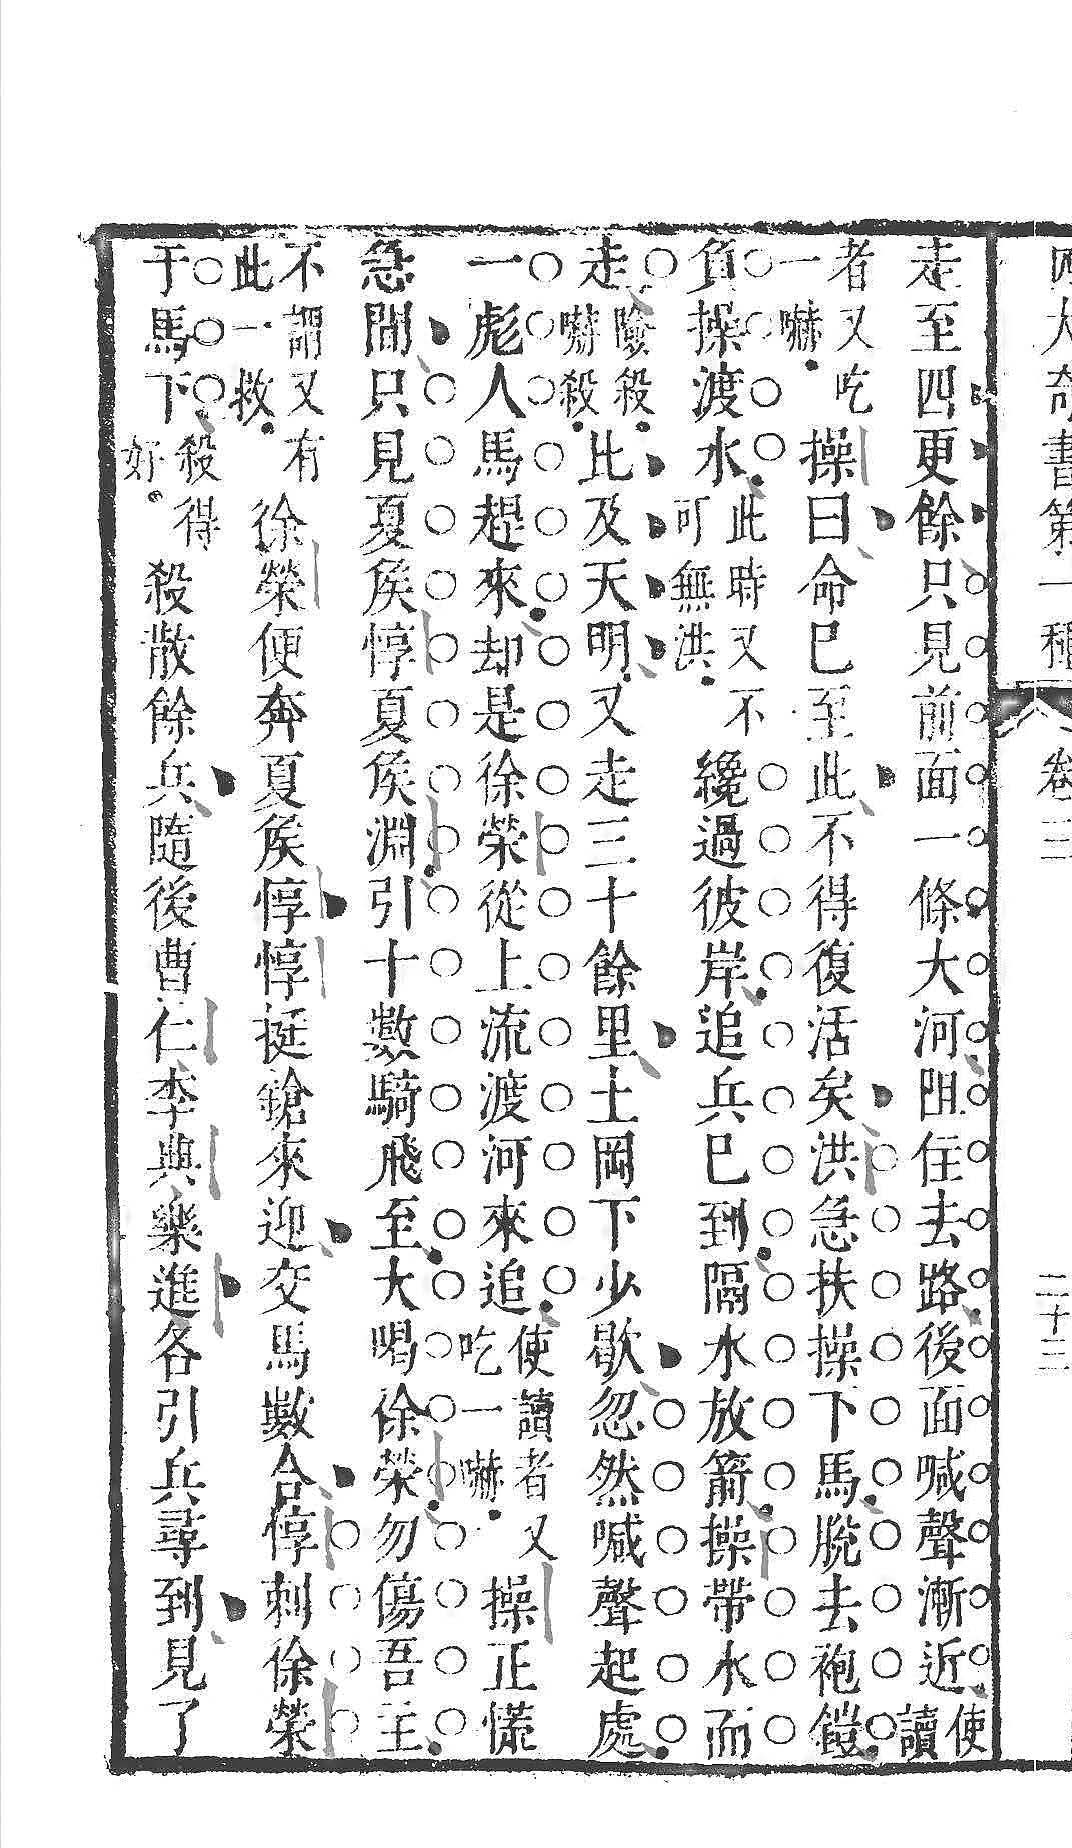 四大奇書第一種 卷三 二十三
走至四更餘只見前面一條大河阻住去路後面喊聲漸近使讀
者又吃一嚇操曰命巳至此不得復活矣洪急扶操下馬脫去袍鎧
負操渡水此時又不可無洪纔過彼岸追兵巳到隔水放箭操帶水而
走險殺嚇殺比及天明又走三十餘里土岡下少歇忽然喊聲起處
一彪人馬趕來却是徐榮從上流渡河來追使讀者又吃一嚇操正慌
急間只見夏侯惇夏侯淵引十數騎飛至大喝徐榮勿傷吾主
不謂又有此一救徐榮便奔夏侯惇惇挺鎗來迎交馬數合惇刺徐榮
于馬下殺得好殺散餘兵隨後曹仁李典樂進各引兵尋到見了